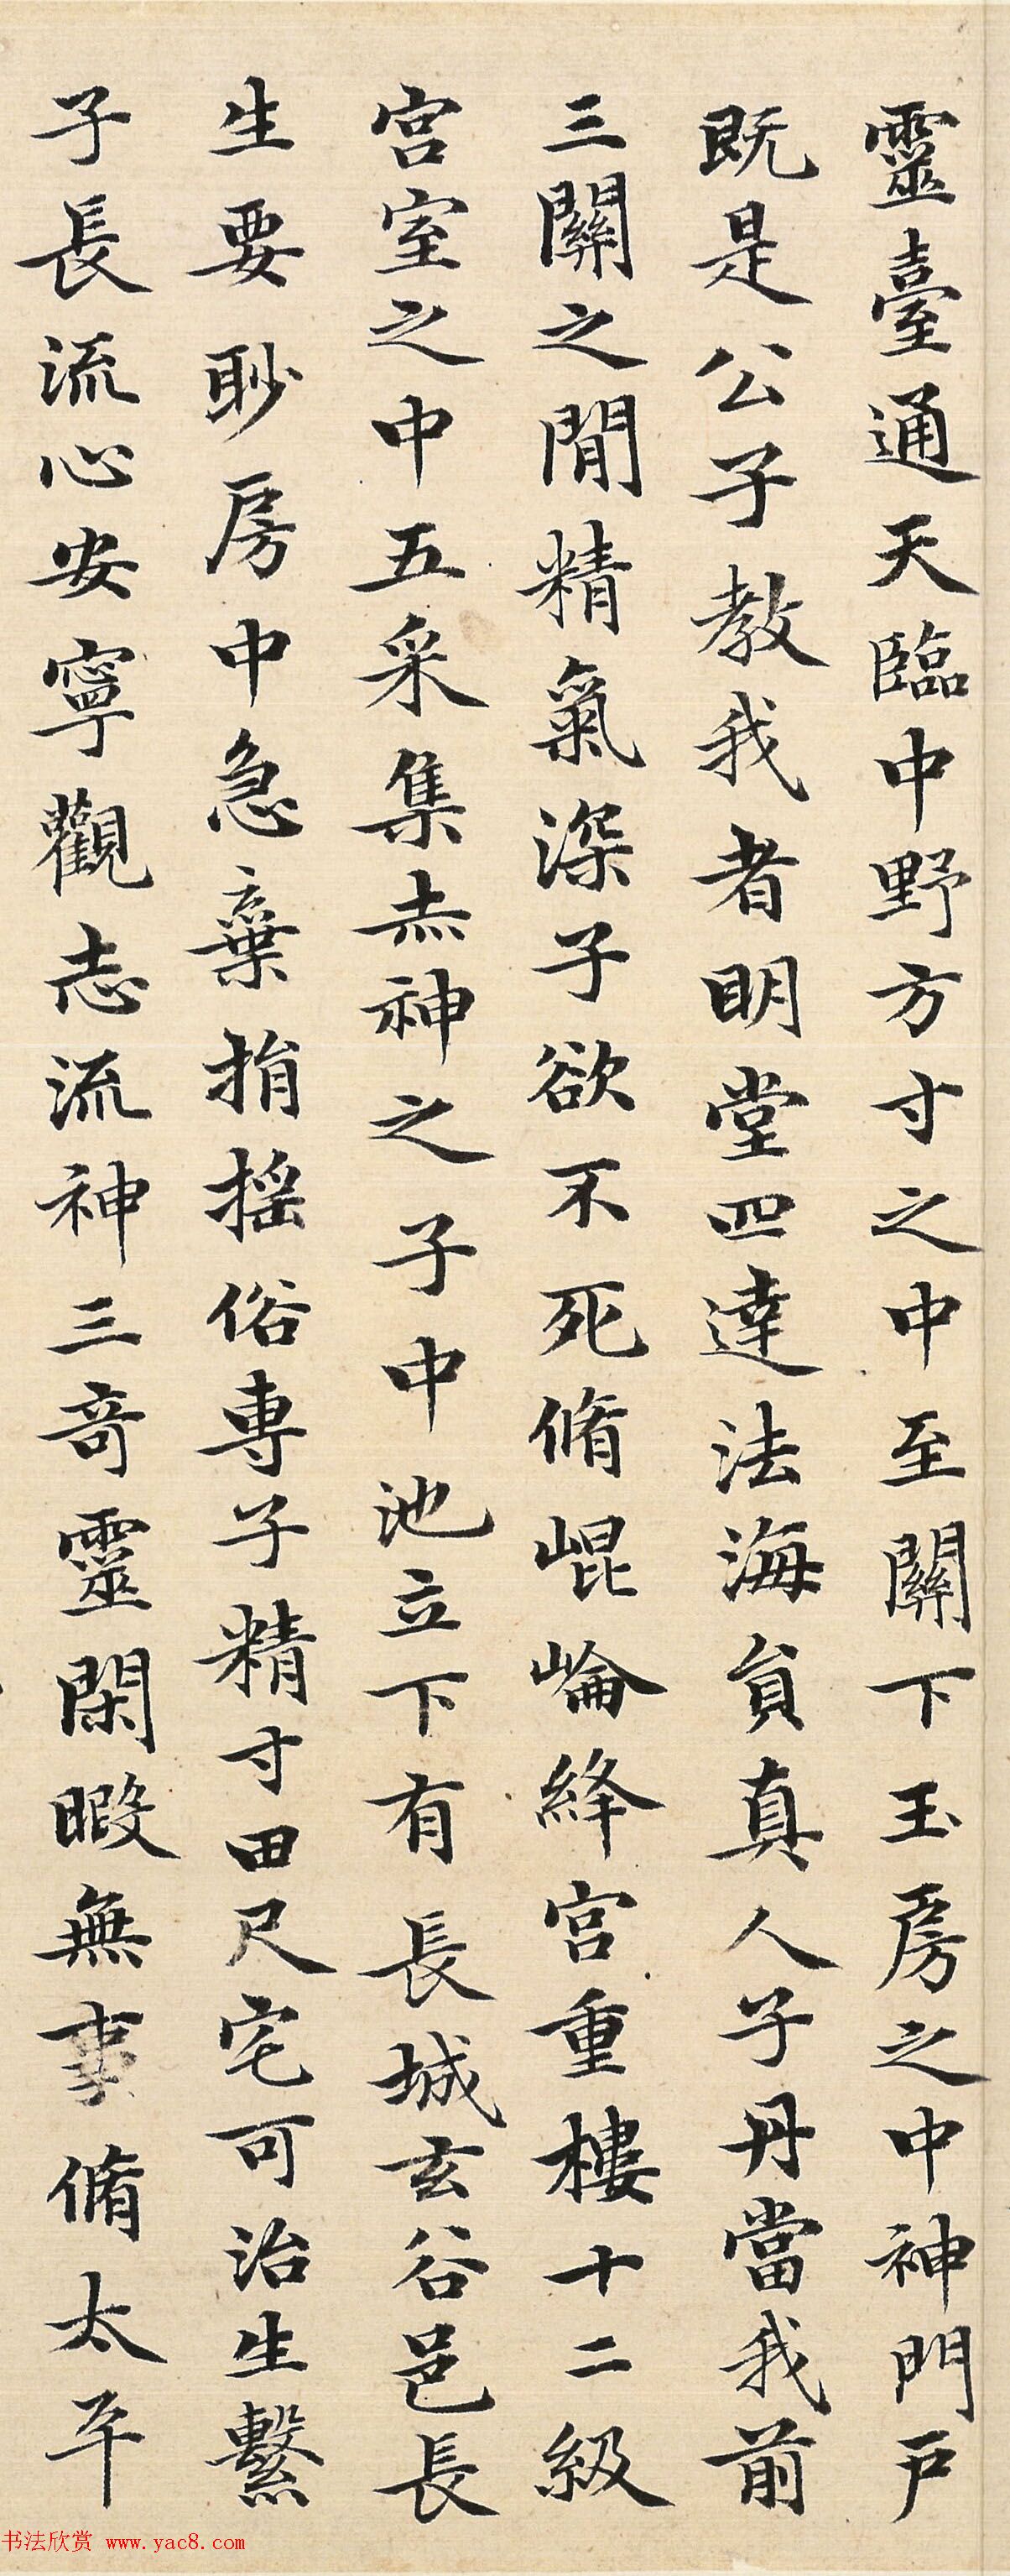 靈臺通天臨中野方寸之中至關下玉房之中神門戶
既是公子教我者明堂四達法海員真人子丹當我前
三關之閒精氣深子欲不死脩崐崘絳宮重樓十二級
宮室之中五采集赤神之子中池立下有長城玄谷邑長
生要眇房中急棄捐搖俗專子精寸田尺宅可治生繫
子長流心安寧觀志流神三奇靈閑暇無事脩太平
书法欣赏 www.yac8.com